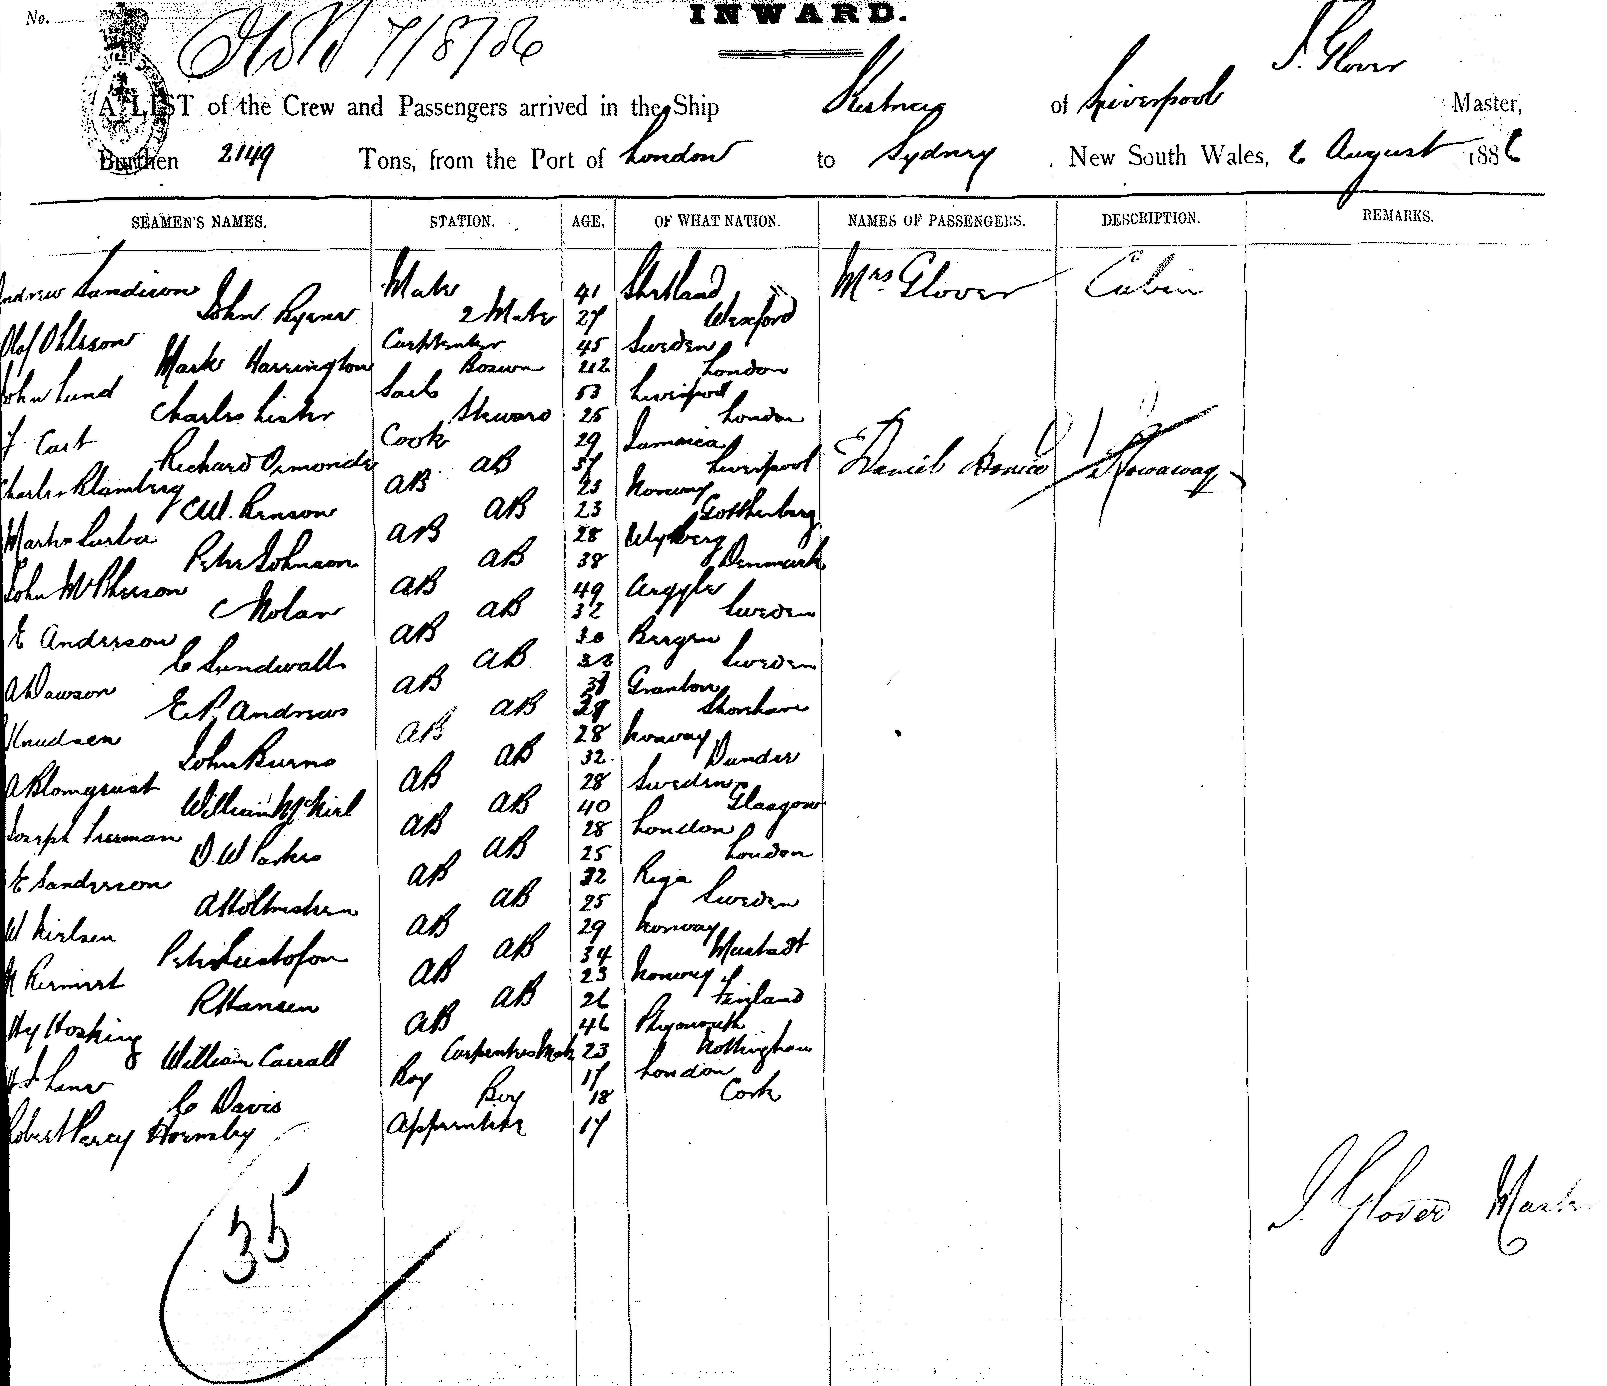 No.
INWARD.
7/8/86
J. Glover
A LIST of the Crew and Passengers arrived in the Ship of Liverpool Master,
Burthen 2149 Tons, from the Port of London to Sydney . New South Wales, 6 August 1886
SEAMEN'S NAMES. STATION. AGE. OF WHAT NATION. NAMES OF PASSENGERS. DESCRIPTION. REMARKS.
Andrew Sandison Mate 41 Shetland Mrs Glover Cabin
John 2 Mate 27 Wexford
Olof Ohlsson Carpenter 45 Sweden
Mark Harrington Bosun London
John Lund Sails 53 Liverpool
Charles Lister Steward 25 London
Cook 29 Jamaica
Richard Ormonde AB 37 Liverpool Daniel Stowaway
Charles AB 23 Norway
C.W. AB 23 Gothenberg
AB 28
Peter Johnson AB 38 Denmark
John McPherson AB 49 Argyle
Nolan AB 32 Sweden
E Anderson AB 30 Bergen
C Sundwall AB Sweden
A Dawson AB Granton
E.P. Andrews AB Shoreham
Knudsen AB 28 Norway
John Burns AB 32 Dundee
A Blomqvist AB 28 Sweden
William McNeil AB 40 Glasgow
Joseph Freeman AB 28 London
D W Parkes AB 25 London
E Sanderson AB 32 Riga
A AB 25 Sweden
W Nielsen AB 29 Norway
Peter Gustofson AB 34
AB 23 Norway
R Hansen AB 26 Finland
Hy Hosking AB 46 Plymouth
William Carroll Carpenters Mate 23 Nottingham
Lane Boy 17 London
C Davis Boy 18 Cork
Robert Percy Hornsby Apprentice 17
35
J. Glover Master